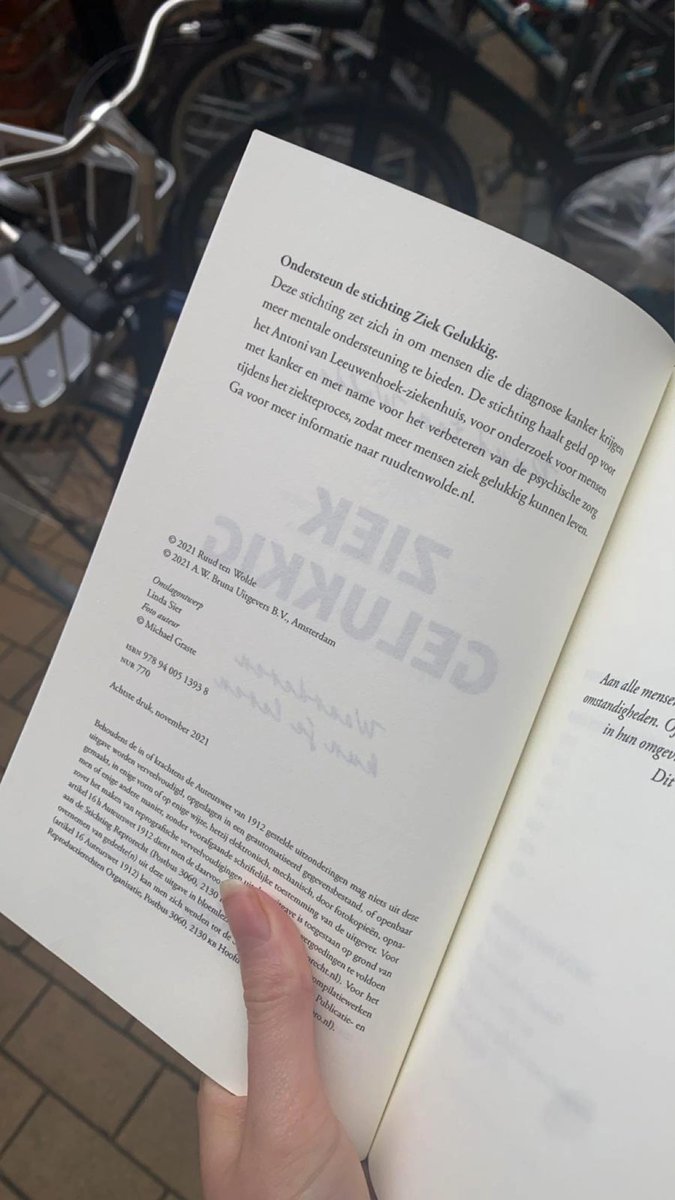 Ondersteun de stichting Ziek Gelukkig.
Deze stichting zet zich in om mensen die de diagnose kanker krijgen
meer mentale ondersteuning te bieden. De stichting haalt geld op voor
het Antoni van Leeuwenhoek-ziekenhuis, voor onderzoek voor mensen
met kanker en met name voor het verbeteren van de psychische zorg
tijdens het ziekteproces, zodat meer mensen ziek gelukkig kunnen leven.
Ga voor meer informatie naar ruudtenwolde.nl.
ZIEK
GELUKKIG
© 2021 Ruud ten Wolde
© 2021 A.W. Bruna Uitgevers B.V., Amsterdam
Omslagontwerp
Linda Sier
Foto auteur
© Michael Graste
ISBN 978 94 005 1393 8
NUR 770
Achtste druk, november 2021
Behoudens de in of krachtens de Auteurswet van 1912 gestelde uitzonderingen mag niets uit deze
uitgave worden verveelvoudigd, opgeslagen in een geautomatiseerd gegevensbestand, of openbaar
gemaakt, in enige vorm of op enige wijze, hetzij elektronisch, mechanisch, door fotokopieën, opna-
men of enige andere manier, zonder voorafgaande schriftelijke toestemming van de uitgever. Voor
zover het maken van reprografische verveelvoudigingen uit is toegestaan op grond van
artikel 16 h Auteurswet 1912 dient men de daarvoor vergoedingen te voldoen
aan de Stichting Reprorecht (Postbus 3060, 2130 Voor het
overnemen van gedeelte(n) uit deze uitgave in compilatiewerken
(artikel 16 Auteurswet 1912) kan men zich wenden tot de Publicatie- en
Reproductierechten Organisatie, Postbus 3060, 2130 KB
Aan alle
omstandigheden.
in hun
Dit